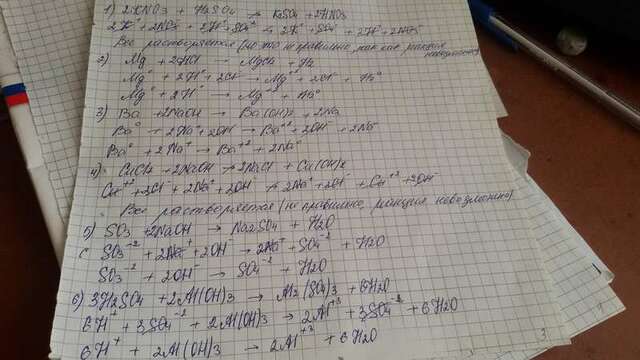 1) 2KNO3 + H2SO4 → K2SO4 + 2HNO3
2K+ + 2NO3- + 2H+ + SO4-2 → 2K+ + SO4-2 + 2H+ + 2NO3-
Все растворяется (но это неправильно, так как реакция невозможна)
2) Mg + 2HCl → MgCl2 + H2
Mg0 + 2H+ + 2Cl- → Mg+2 + 2Cl- + H20
Mg0 + 2H+ → Mg+2 + H20
3) Ba + 2NaOH → Ba(OH)2 + 2Na
Ba0 + 2Na+ + 2OH- → Ba+2 + 2OH- + 2Na0
Ba0 + 2Na+ → Ba+2 + 2Na0
4) CuCl2 + 2NaOH → 2NaCl + Cu(OH)2
Cu+2 + 2Cl- + 2Na+ + 2OH- → 2Na+ + 2Cl- + Cu+2 + 2OH-
Все растворяется (неправильно, реакция невозможна)
5) SO3 + 2NaOH → Na2SO4 + H2O
SO3-2 + 2Na+ + 2OH- → 2Na+ + SO4-2 + H2O
SO3-2 + 2OH- → SO4-2 + H2O
6) 3H2SO4 + 2Al(OH)3 → Al2(SO4)3 + 6H2O
6H+ + 3SO4-2 + 2Al(OH)3 → 2Al+3 + 3SO4-2 + 6H2O
6H+ + 2Al(OH)3 → 2Al+3 + 6H2O